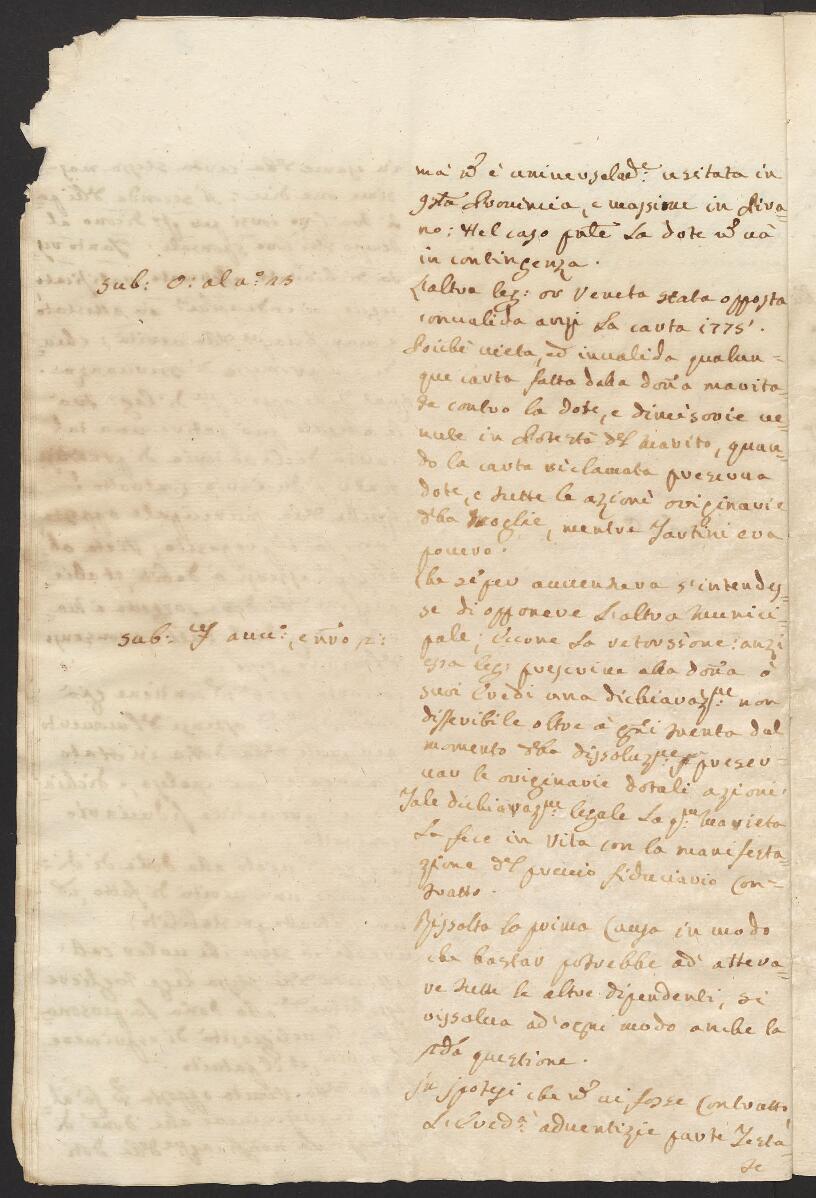 mà nõ è universalm̃e: usitata in
q̃sta Provincia, e massime in Pira=
no: Nel caso pñte La dote nõ và
in contingenza.
sub: O: al n:° 25
L'altra leg: or Veneta stata opposta
convalida anzi La carta 1775.
Poiché vieta, ed invalida qualun=
que carta fatta dalla doña marita=
ta contro la dote, e dimisorie ve=
nute in Potestà del Marito, quan=
do la carta riclamata preserva
dote, e tutte le azioni originarie
della Moglie, mentre Tartini era
povero.
Che se per avventura s'intendes=
se di opponere L'altra Munici=
sub:
pale; Eccone La retorsione: anzi
essa leg: prescrive alla doña ò
suoi Eredi una dichiaraz:ne non
differibile oltre à g:ni trenta dal
momento della dissoluz:ne preser=
var le originarie dotali azioni.
Tale dichiaraz:ne legale La q:m Marieta
La fece in Vita con la manifesta=
zione del preciso fiduciario Con=
tratto.
Rissolta la prima Causa in modo
che bastar potrebbe ad atterra=
re tutte le altre dipendenti, si
rissolva ad ogni modo anche la
2da questione.
In Ipotesi che nõ vi fosse Contratto
L'Eredà adventizie parte Testa=
te